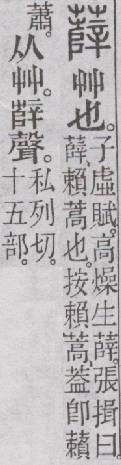 薛艸也。子虛賦。高燥生薛。張揖曰。薛、賴蒿也。按賴蒿葢卽藾
蕭。从艸。辥聲。私列切。十五部。